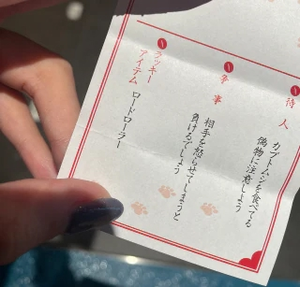 待人
カブトムシを食べてる
偽物に注意しよう
争事
相手を怒らせてしまうと
負けるでしょう
ラッキー
アイテム
ロードローラー